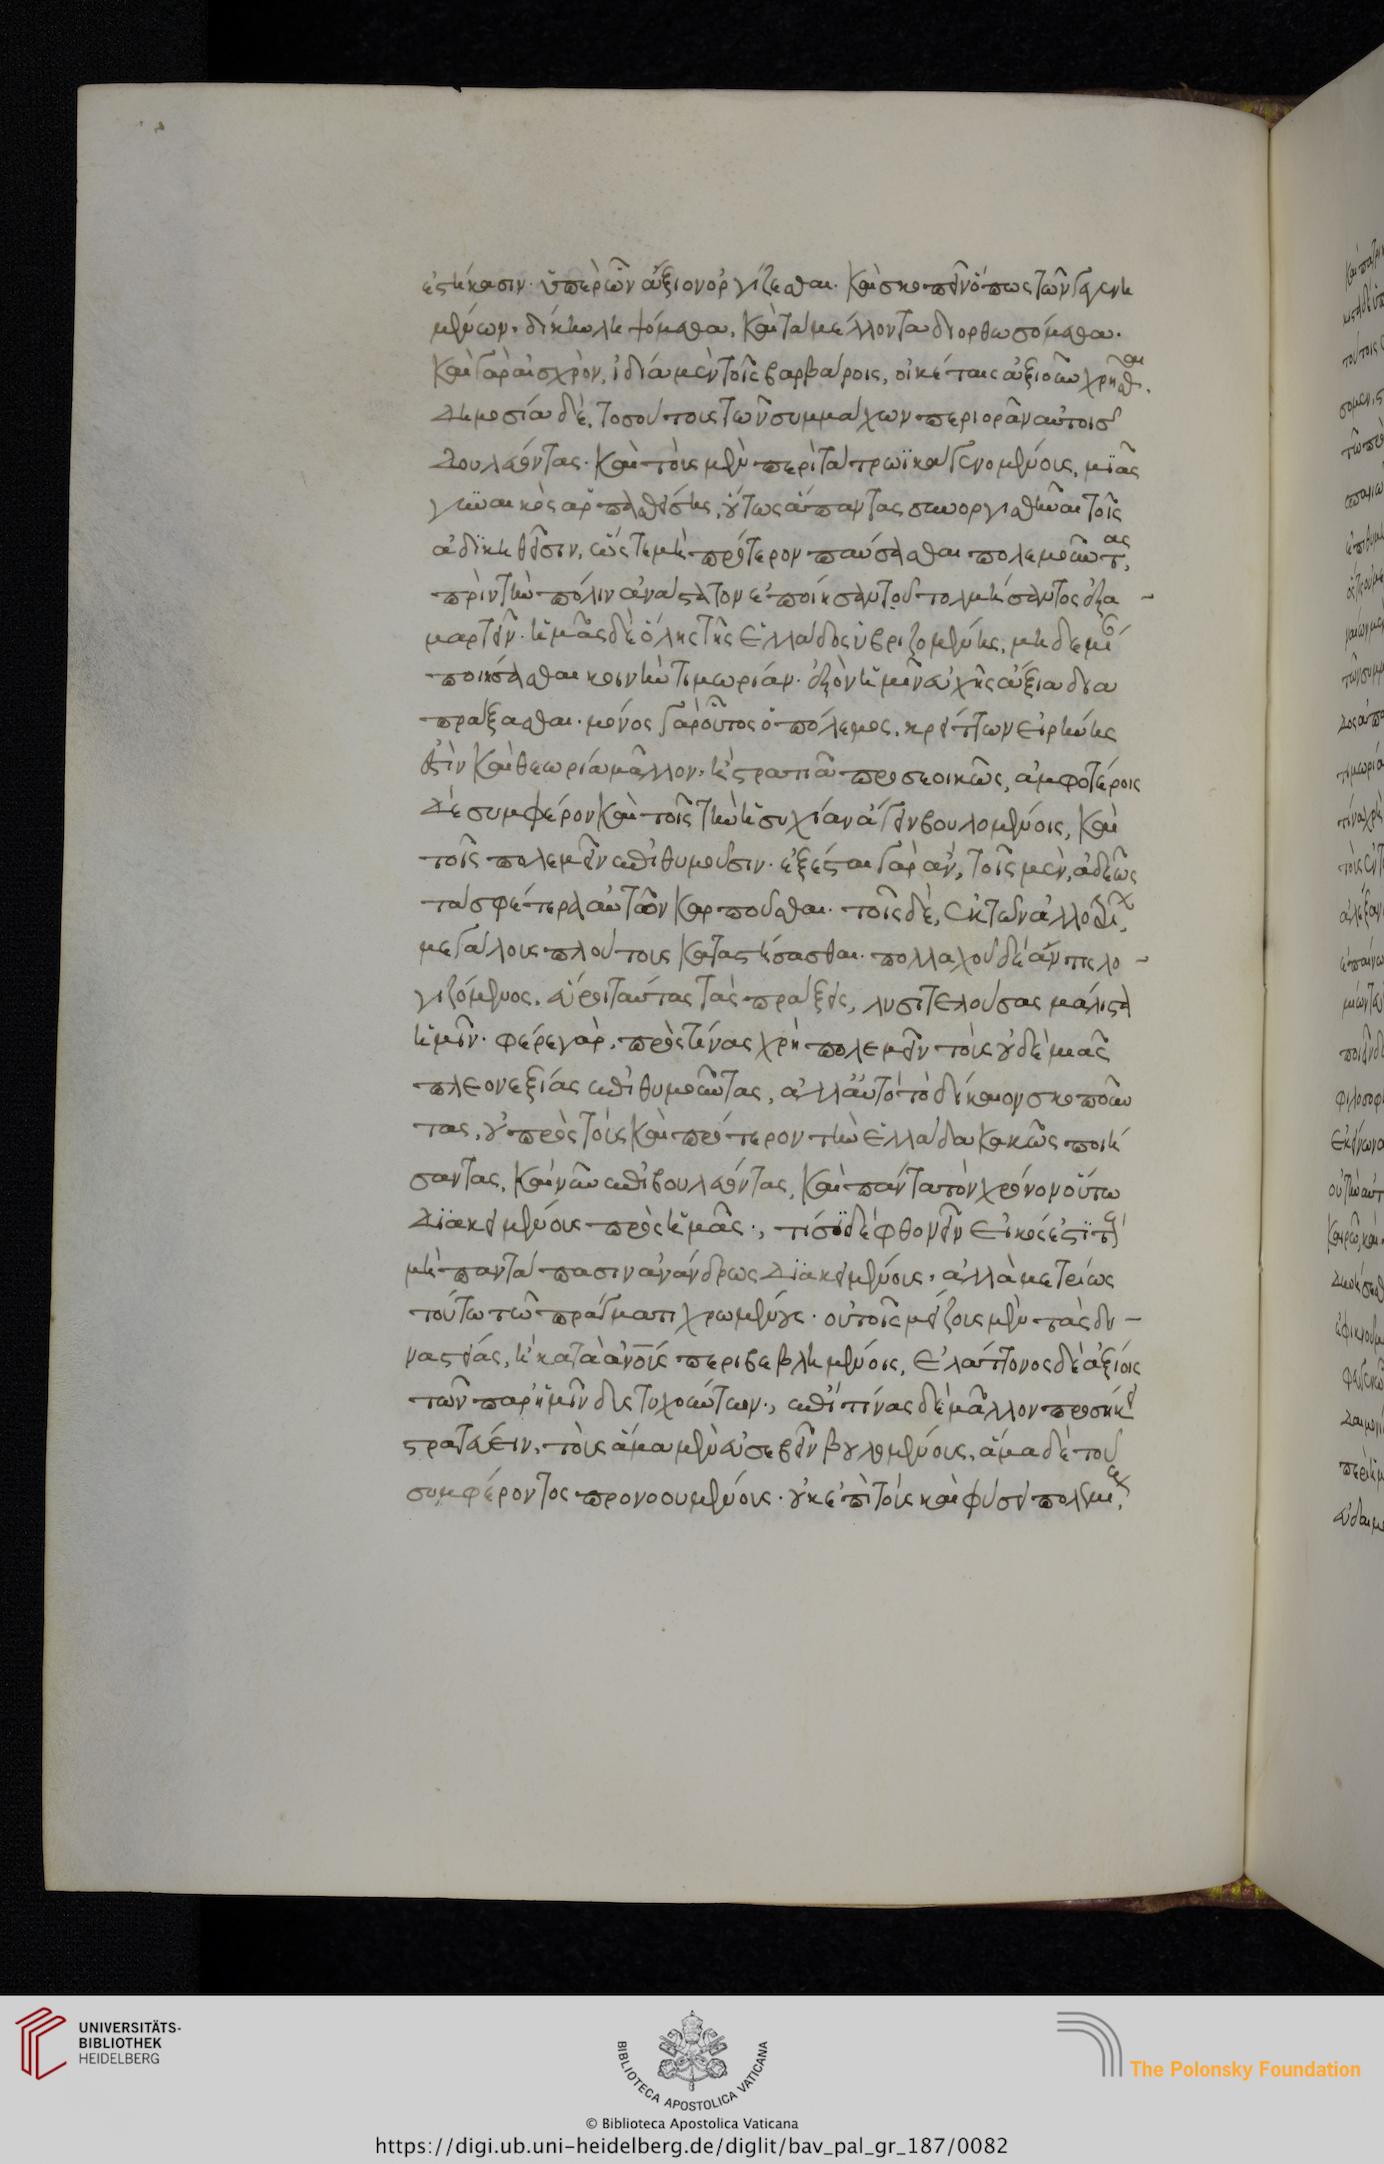 ἑστήκασιν. ὑπὲρ ὧν ἄξιον ὀργίζεσθαι. καὶ σκοπεῖν ὅπως τῶν γεγενη
μένων, δίκην ληψόμεθα, καὶ τὰ μέλλοντα διορθωσόμεθα.
καὶ γὰρ αἰσχρὸν, ἰδίᾳ μὲν τοῖς βαρβάροις, οἰκέταις ἀξιοῦν χρῆσθαι.
δημοσίᾳ δὲ, τοσούτους τῶν συμμάχων περιορᾶν αὐτοῖς
δουλεύοντας. καὶ τοὺς μὲν περὶ τὰ τρωϊκὰ γενομένους, μιᾶς
γυναικὸς ἁρπασθείσης, οὕτως ἅπαντας συνοργισθῆναι τοῖς
ἀδικηθεῖσιν, ὥστε μὴ πρότερον παύσασθαι πολεμοῦντας,
πρὶν τὴν πόλιν ἀνάστατον ἐποίησαν τοῦ τολμήσαντος ἐξα-
μαρτεῖν. ἡμᾶς δὲ ὅλης τῆς Ἑλλάδος ὑβριζομένης, μηδεμίαν
ποιήσασθαι κοινὴν τιμωρίαν. ἐξὸν ἡμῖν εὐχῆς ἄξια δια
πράξασθαι. μόνος γὰρ οὗτος ὁ πόλεμος, κρείττων εἰρήνης
ἐστὶν καὶ θεωρίᾳ μᾶλλον, ἢ στρατιᾷ προσεοικὼς, ἀμφοτέροις
δὲ συμφέρον καὶ τοῖς τὴν ἡσυχίαν ἄγειν βουλομένοις, καὶ
τοῖς πολεμεῖν ἐπιθυμοῦσιν. ἐξέσται γὰρ ἂν, τοῖς μὲν, ἀδεῶς
τὰ σφέτερα αὐτῶν καρποῦσθαι. τοῖς δὲ, ἐκ τῶν ἀλλοτρίων,
μεγάλους πλούτους καταστήσασθαι. πολλαχοῦ δέ ἄν τις λο-
γιζόμενος, εὕροι ταύτας τὰς πράξεις, λυσιτελούσας μάλιστα
ἡμῖν. φέρε γὰρ, πρὸς τίνας χρὴ πολεμεῖν τοὺς οὐδεμιᾶς
πλεονεξίας ἐπιθυμοῦντας, ἀλλ' αὐτὸ τὸ δίκαιον σκοποῦν
τας, οὐ πρὸς τοὺς καὶ πρότερον τὴν Ἑλλάδα κακῶς ποιή
σαντας, καὶ νῦν ἐπιβουλεύοντας, καὶ πάντα τὸν χρόνον οὕτω
διακειμένους πρὸς ἡμᾶς., τίσι δὲ φθονεῖν εἰκός ἐστι τοὺς
μὴ παντάπασιν ἀνάνδρως διακειμένους, ἀλλὰ μετρίως
τούτω τῶ πράγματι χρωμένους. οὐ τοῖς μείζους μὲν τὰς δυ-
ναστείας, ἢ κατὰ ἀνους περιβεβλημένοις, ἐλάττονος δὲ ἀξίοις
τῶν παρ' ἡμῖν δυστυχούντων., ἐπὶ τίνας δὲ μᾶλλον προσήκει
στρατεύειν, τοὺς ἅμα μὲν εὐσεβεῖν βουλομένους, ἅμα δὲ τοῦ
συμφέροντος προνοουμένους. οὐκ ἐπὶ τοὺς καὶ φύσει πολεμίους,
UNIVERSITÄTS-
BIBLIOTHEK
HEIDELBERG
BIBLIOTECA APOSTOLICA VATICANA
The Polonsky Foundation
© Biblioteca Apostolica Vaticana
https://digi.ub.uni-heidelberg.de/diglit/bav_pal_gr_187/0082